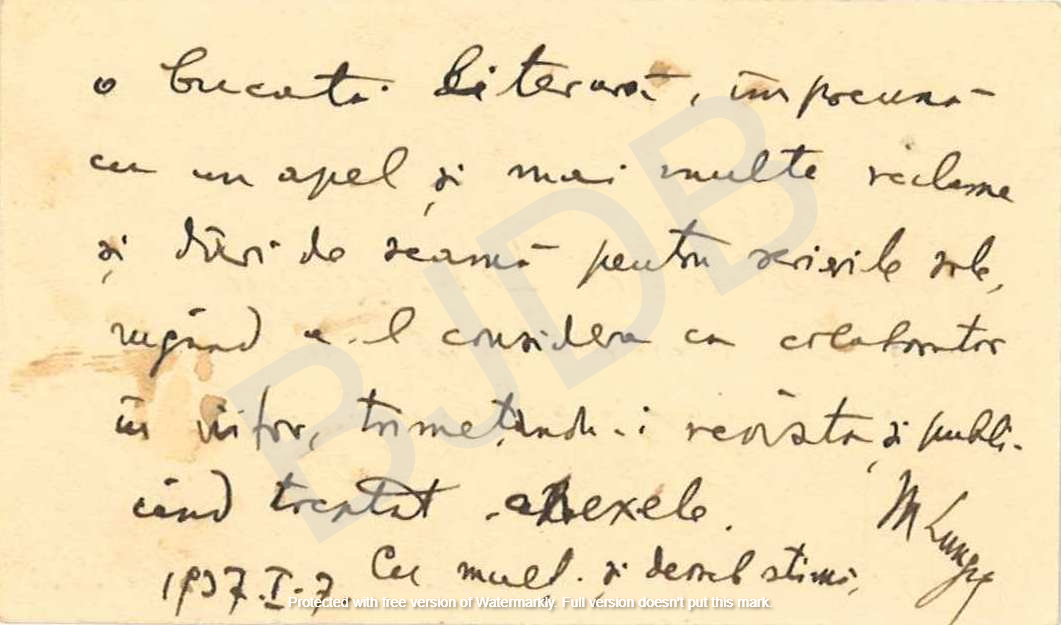 o bucată literară, împreună
cu un apel și mai multe reclame
și dări de seamă pentru scrierile sale,
rugând a-l considera ca colaborator
în viitor, trimețându-i revista și publi-
când treptat anexele.
M Lungu
1937.I.7 Cu mult. și deoseb stimă,
BJDB
Protected with free version of Watermarkly. Full version doesn't put this mark.